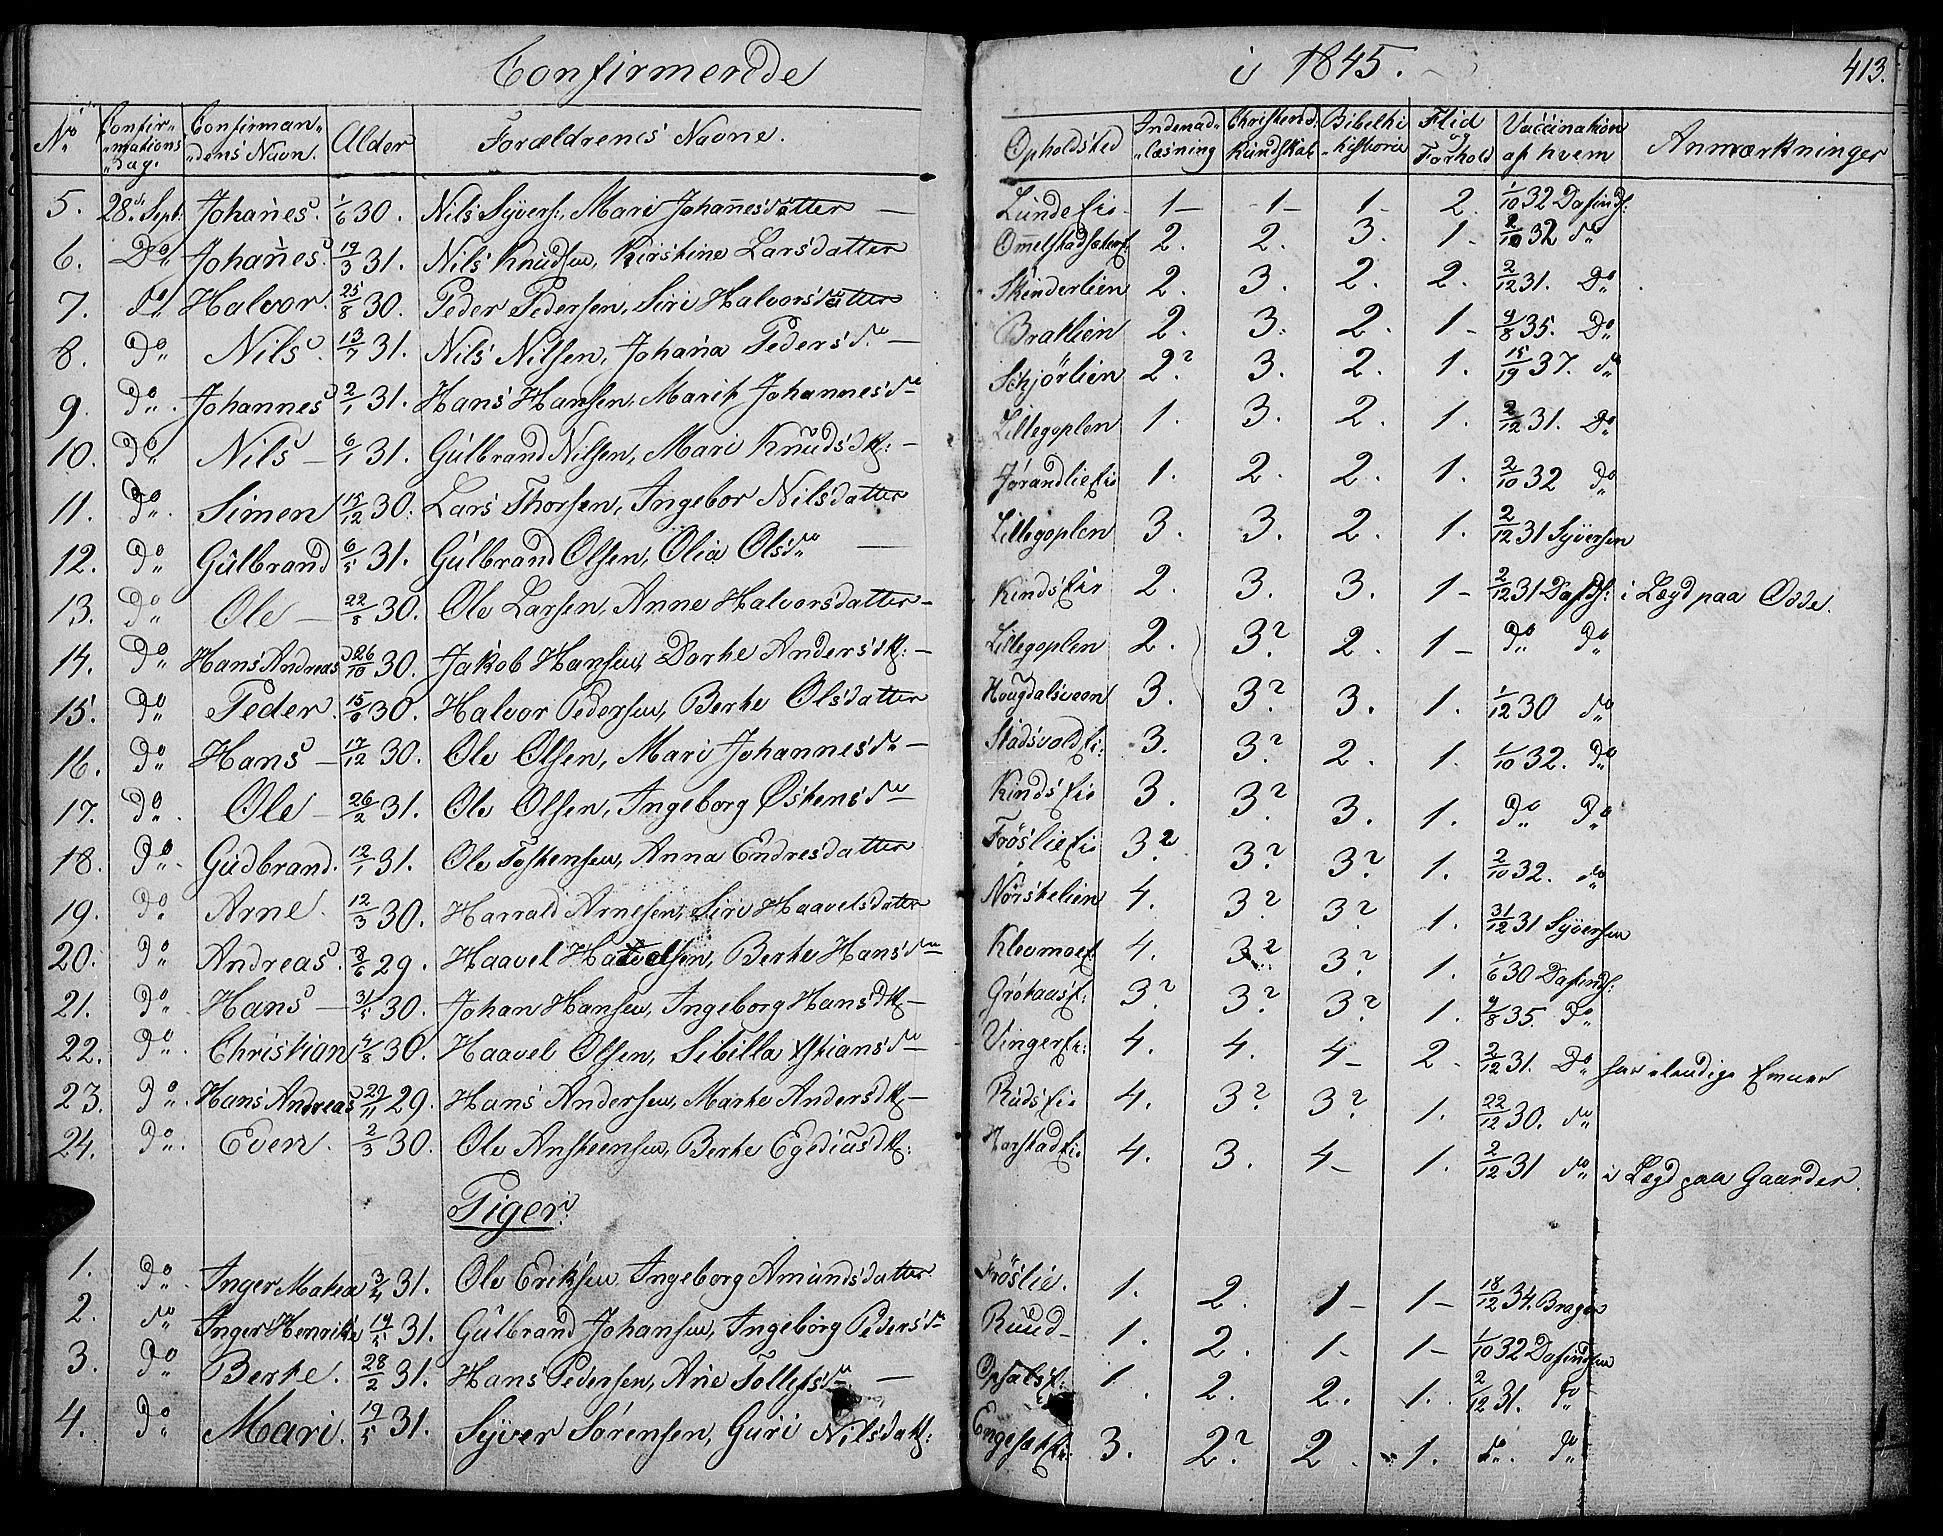 Confirmerede i 1845. 413.
No Confirmations dag. Confirmandens Navn. Alder Forældrenes Navne. Opholdsted Indenadlæsning Christend. Kundskab Bibelhistorie Flid og Forhold Vaccination af hvem Anmærkninger
5. 28de Sept: Johannes. 1/6 30. Nils Syvers:, Mari Johannesdatter — Lunde Eie 1 — 1 — 1 — 2. 1/10 32 Dafinds:
6. Do Johannes. 19/3 31. Nils Knudsen, Kirstine Larsdatter 2. 2. 3. 1. 2/10 32 do
7. do Halvor. 25/8 30. Peder Pedersen, Siri Halvorsdatter Skinderlien 2. 3. 2. 2. 2/12 31. Do
8. Do Nils. 13/7 31. Nils Nilsen, Johana Pedersdr — Bratlien 2. 3. 2. 1 — 9/8 35. Do
9. Do Johannes 2/1 31. Hans Hansen, Marit Johannesdr Schjørlien 2? 3. 2. 1. 15/19 37. do
10. Do Nils — 6/1 31. Gulbrand Nilsen, Mari Knudsdtr: — Lillegoplen 1. 3. 2. 1. 2/12 31. Do
11. Do Simen 15/12 30. Lars Thorsen, Ingebor Nilsdatter Jørandlie Eie 1. 2. 2. 1. 2/10 32 Do
12. Do Gulbrand 6/5 31. Gulbrand Olsen, Olia Olsdr — Lillegoplen 3. 3. 2. 1. 2/12 31 Syversen
13. Do Ole — 22/8 30. Ole Larsen, Anne Halvorsdatter — Kinds Eie 2. 3. 3. 1 — 2/12 31 Dafds: i Lægd paa Odde.
14. Do Hans Andreas 26/10 30. Jakob Hansen, Dorte Andersdtr: — Lillegoplen 2. 3? 2. 1 — Do Do
15. Do Peder. 15/6 30. Halvor Pedersen, Berte Olsdatter Hougdalsveen 3. 3? 3. 1. 1/12 30 do
16. Do Hans — 17/12 30. Ole Olsen, Mari Johannesdr — Stadsvold Ei: 3. 3? 2. 1. 1/10 32. Do
17. Do Ole — 26/2 31. Ole Olsen, Ingeborg Østensdr Kinds Eie 3. 3? 3. 1. Do Do
18. Do Gudbrand. 12/1 31. Ole Tostensen, Anna Endresdatter Frøslie Eie 3? 3? 3? 1. 2/10 32. do
19. Do Arne. 12/3 30. Harrald Arnesen, Siri Haavelsdatter Nørstelien 4. 3? 3? 1. 31/12 31 Syversen
20. Do Andreas. 8/6 29. Haavel Haavelsen, Berte Hansdr Klevmoe E 4. 3? 3? 1. 1/6 30 Dafinds:
21. Do Hans — 31/5 30. Johan Hansen, Ingeborg Hansdtr — 3? 3? 3? 1. 9/8 35. Do
22. Do Christian 4/8 30. Haavel Olsen, Sibilla Xstiansdr Vinger Ei: 4. 4. 4 — 2. 2/12 31. Do har elendige Evner
23. Do Hans Andreas 29/11 29. Hans Andersen, Marte Andersdtr — Ruds Eie 4. 3? 3? 1. 22/12 30. do
24. Do Even. 2/3 30. Ole Ansteensen, Berte Egediusdtr: Harstad Eie 4. 3. 4 — 1. 2/12 31 do i Lægd paa Gaarder.
Piger:
1. Do Inger Matea 3/4 31. Ole Eriksen Ingeborg Amundsdatter Frøslie. 1. 2. 1 — 1 — 18/12 34. Brager
2. do Inger Henrikke 19/5 31. Gulbrand Johansen, Ingeborg Pedersdr Ruud — 1. 2. 1 — 1 — 1/10 32 Dafindsen
3. Do Berte. 28/2 31. Hans Pedersen, Ane Tollefsdr — Opsals E: 1. 2. 2. 1. 2/12 31. Do
4. Do Mari. 19/5 31. Syver Sørensen, Guri Nilsdatr: Engesæt Ei: 3. 2? 2. 1. do Do